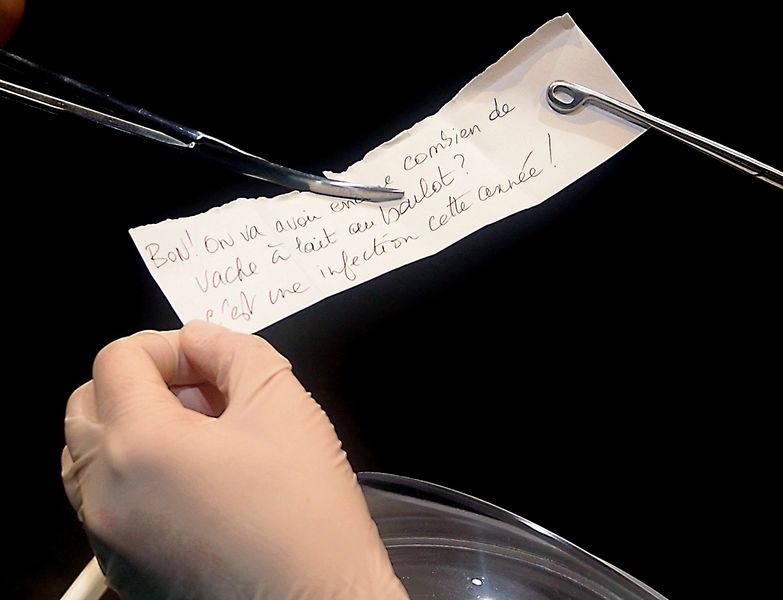 BON! On va avoir combien de
vache à lait au boulot?
c'est une infection cette année!